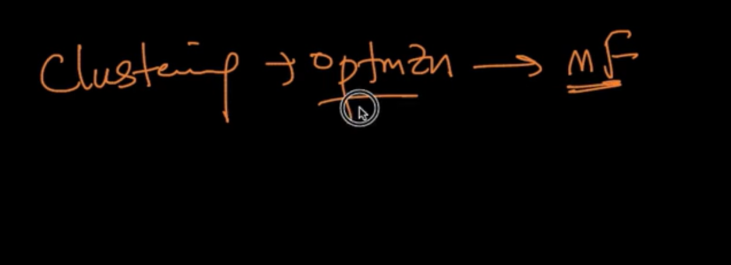 Clustering → optmzn → MF